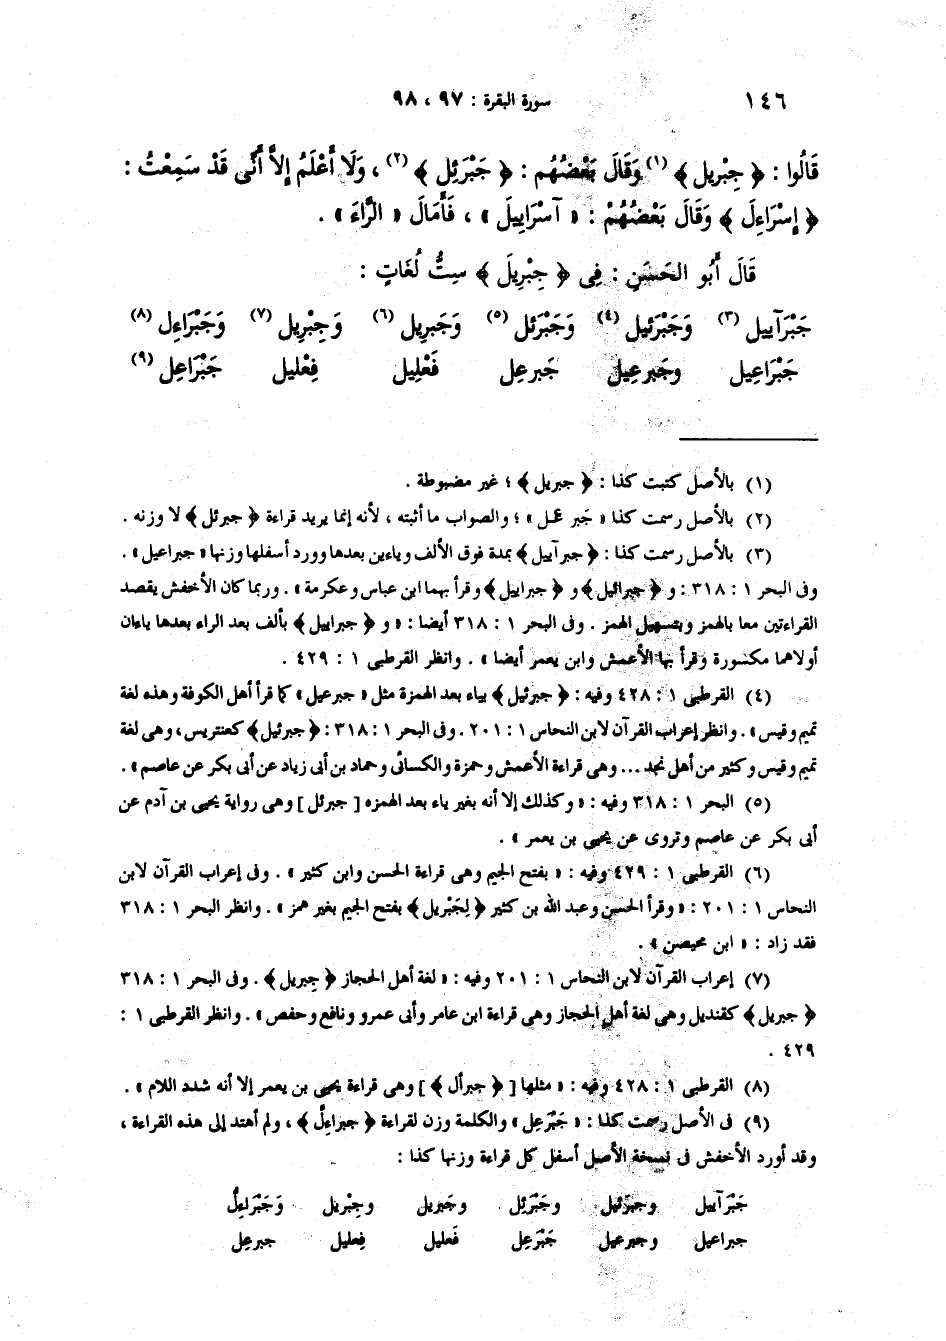 ١٤٦ سورة البقرة : ٩٧ ، ٩٨
قَالُوا : ﴿ جِبْرِيل ﴾ (١) وَقَالَ بَعْضُهُم : ﴿ جَبْرَئِل ﴾ (٢) ، وَلَا أَعْلَمُ إِلاَّ أَنَّى قَدْ سَمِعْتُ :
﴿ إِسْرَاءِلَ ﴾ وَقَالَ بَعْضُهُمْ : « آسْرَايِيلَ » ، فَأَمَالَ « الرَّاءَ » .
قَالَ أَبُو الحَسَنِ : فِى ﴿ جِبْرِيلَ ﴾ سِتُّ لُغَاتٍ :
جَبْرَآييل (٣) وَجَبْرَئيل (٤) وَجَبْرَئل (٥) وَجَبريل (٦) وَجِبْرِيل (٧) وَجَبْرَاءِل (٨)
جَبْرَاعِيل وجَبرعِيل جَبرعِل فَعْلِيل فِعْليل جَبْرَاعِل (٩)
(١) بالأصل كتبت كذا : ﴿ جبريل ﴾ ؛ غير مضبوطة .
(٢) بالأصل رسمت كذا « جَبر عل » ؛ والصواب ما أثبته ، لأنه إنما يريد قراءة ﴿ جبرئل ﴾ لا وزنه .
(٣) بالأصل رسمت كذا : ﴿ جبرآييل ﴾ بمدة فوق الألف وياءين بعدها وورد أسفلها وزنها « جبراعيل » .
وفى البحر ١ : ٣١٨ : و ﴿ جبرائيل ﴾ و ﴿ جبراييل ﴾ وقرأ بهما ابن عباس وعكرمة » . وربما كان الأخفش يقصد
القراءتين معا بالهمز وبتسهيل الهمز . وفى البحر ١ : ٣١٨ أيضا : « و ﴿ جبراييل ﴾ بألف بعد الراء بعدها ياءان
أولاهما مكسورة وقرأ بها الأعمش وابن يعمر أيضا » . وانظر القرطبى ١ : ٤٢٩ .
(٤) القرطبى ١ : ٤٢٨ وفيه : ﴿ جبرئيل ﴾ بياء بعد الهمزة مثل « جبرعيل » كما قرأ أهل الكوفة وهذه لغة
تميم وقيس » . وانظر إعراب القرآن لابن النحاس ١ : ٢٠١ . وفى البحر ١ : ٣١٨ : ﴿ جبرئيل ﴾ كعنتريس ، وهى لغة
تميم وقيس وكثير من أهل نجد ... وهى قراءة الأعمش وحمزة والكسائى وحماد بن أبى زياد عن أبى بكر عن عاصم » .
(٥) البحر ١ : ٣١٨ وفيه : « وكذلك إلا أنه بغير ياء بعد الهمزه [ جبرئل ] وهى رواية يحيى بن آدم عن
أبى بكر عن عاصم وتروى عن يحيى بن يعمر » .
(٦) القرطبى ١ : ٤٢٩ وفيه : « بفتح الجيم وهى قراءة الحسن وابن كثير » . وفى إعراب القرآن لابن
النحاس ١ : ٢٠١ : « وقرأ الحسن وعبد الله بن كثير ﴿ لِجَبْريل ﴾ بفتح الجيم بغير همز » . وانظر البحر ١ : ٣١٨
فقد زاد : « ابن محيصن » .
(٧) إعراب القرآن لابن النحاس ١ : ٢٠١ وفيه : « لغة أهل الحجاز ﴿ جِبريل ﴾ . وفى البحر ١ : ٣١٨
﴿ جبريل ﴾ كقنديل وهى لغة أهل الحجاز وهى قراءة ابن عامر وأبى عمرو ونافع وحفص » . وانظر القرطبى ١ :
٤٢٩ .
(٨) القرطبى ١ : ٤٢٨ وفيه : « مثلها [ ﴿ جبرأل ﴾ ] وهى قراءة يحيى بن يعمر إلا أنه شدد اللام » .
(٩) فى الأصل رسمت كذا : « جَبْرَعِل » والكلمة وزن لقراءة ﴿ جبراءلّ ﴾ ، ولم أهتد إلى هذه القراءة ،
وقد أورد الأخفش فى نسخة الأصل أسفل كل قراءة وزنها كذا :
جَبْرَآييل وجبرَئيل وجَبْرَئِل وجَبريل وجِبْريل وَجَبْرَاءِلّ
جبراعيل وجبرعيل جَبْرَعِل فَعليل فِعليل جبرعِل